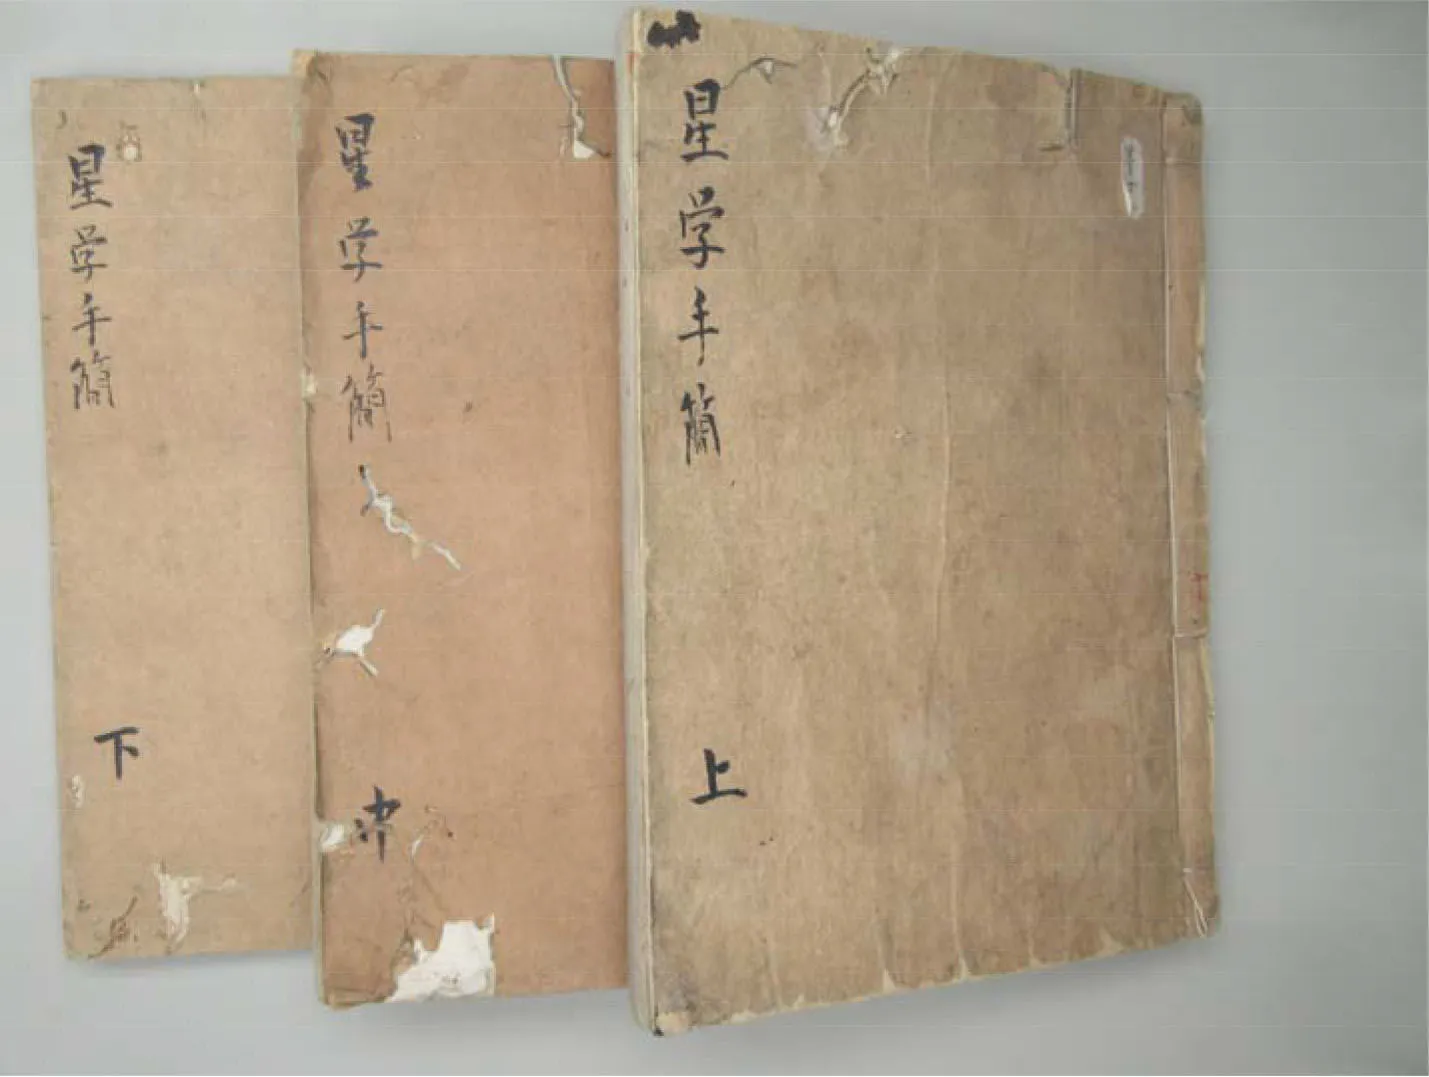 星学手簡
上
星学手簡
中
星学手簡
下